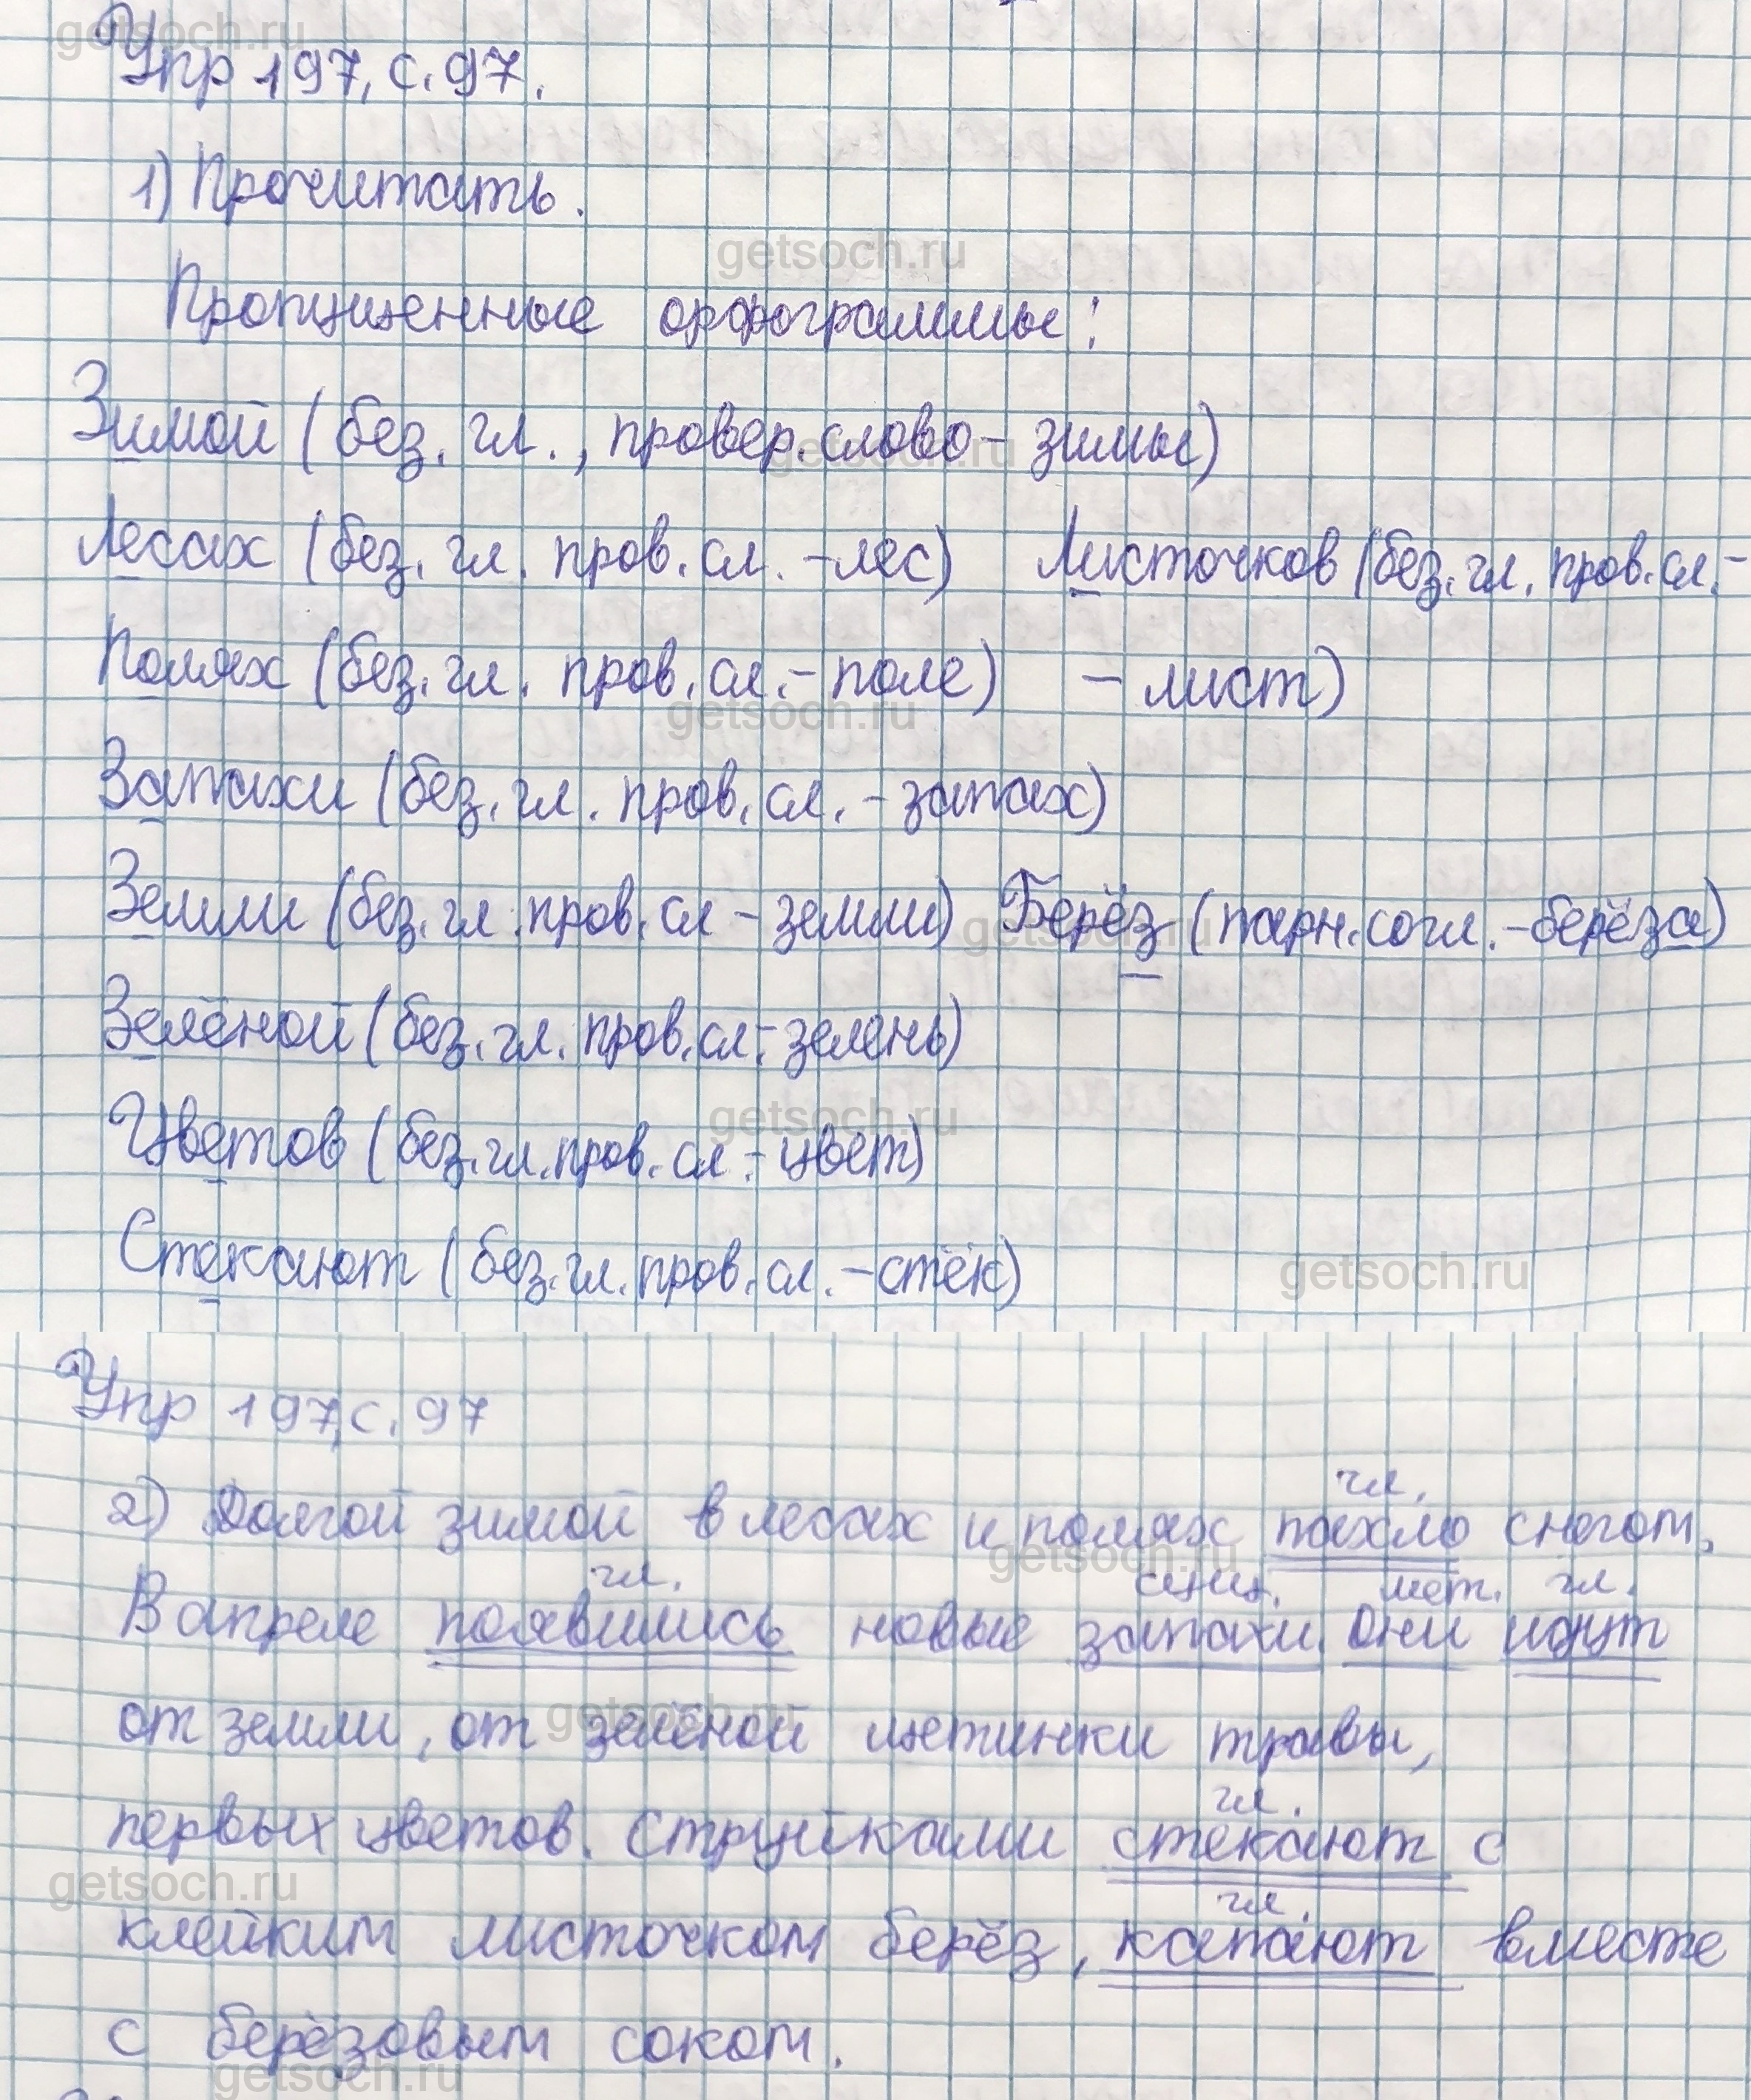 Упр 197, с. 97.
1) Прочитать.
Пропущенные орфограммы:
Зимой (без. гл., провер. слово - зимы)
Лесах (без. гл. пров. сл. - лес) Листочков (без. гл. пров. сл. -
Полях (без. гл. пров. сл. - поле) - лист)
Запахи (без. гл. пров. сл. - запах)
Земли (без. гл. пров. сл - земли) Берёз (парн. согл. - берёза)
Зелёной (без. гл. пров. сл. - зелень)
Цветов (без. гл. пров. сл. - цвет)
Стекают (без. гл. пров. сл. - стёк)
Упр 197, с. 97
гл.
2) Долгой зимой в лесах и полях пахло снегом.
гл. сущ. мет. гл.
В апреле появились новые запахи. Они идут
от земли, от зелёной щетинки травы,
гл.
первых цветов. Струйками стекают с
гл.
клейким листочком берёз, капают вместе
с берёзовым соком.
getsoch.ru
getsoch.ru
getsoch.ru
getsoch.ru
getsoch.ru
getsoch.ru
getsoch.ru
getsoch.ru
getsoch.ru
getsoch.ru
getsoch.ru